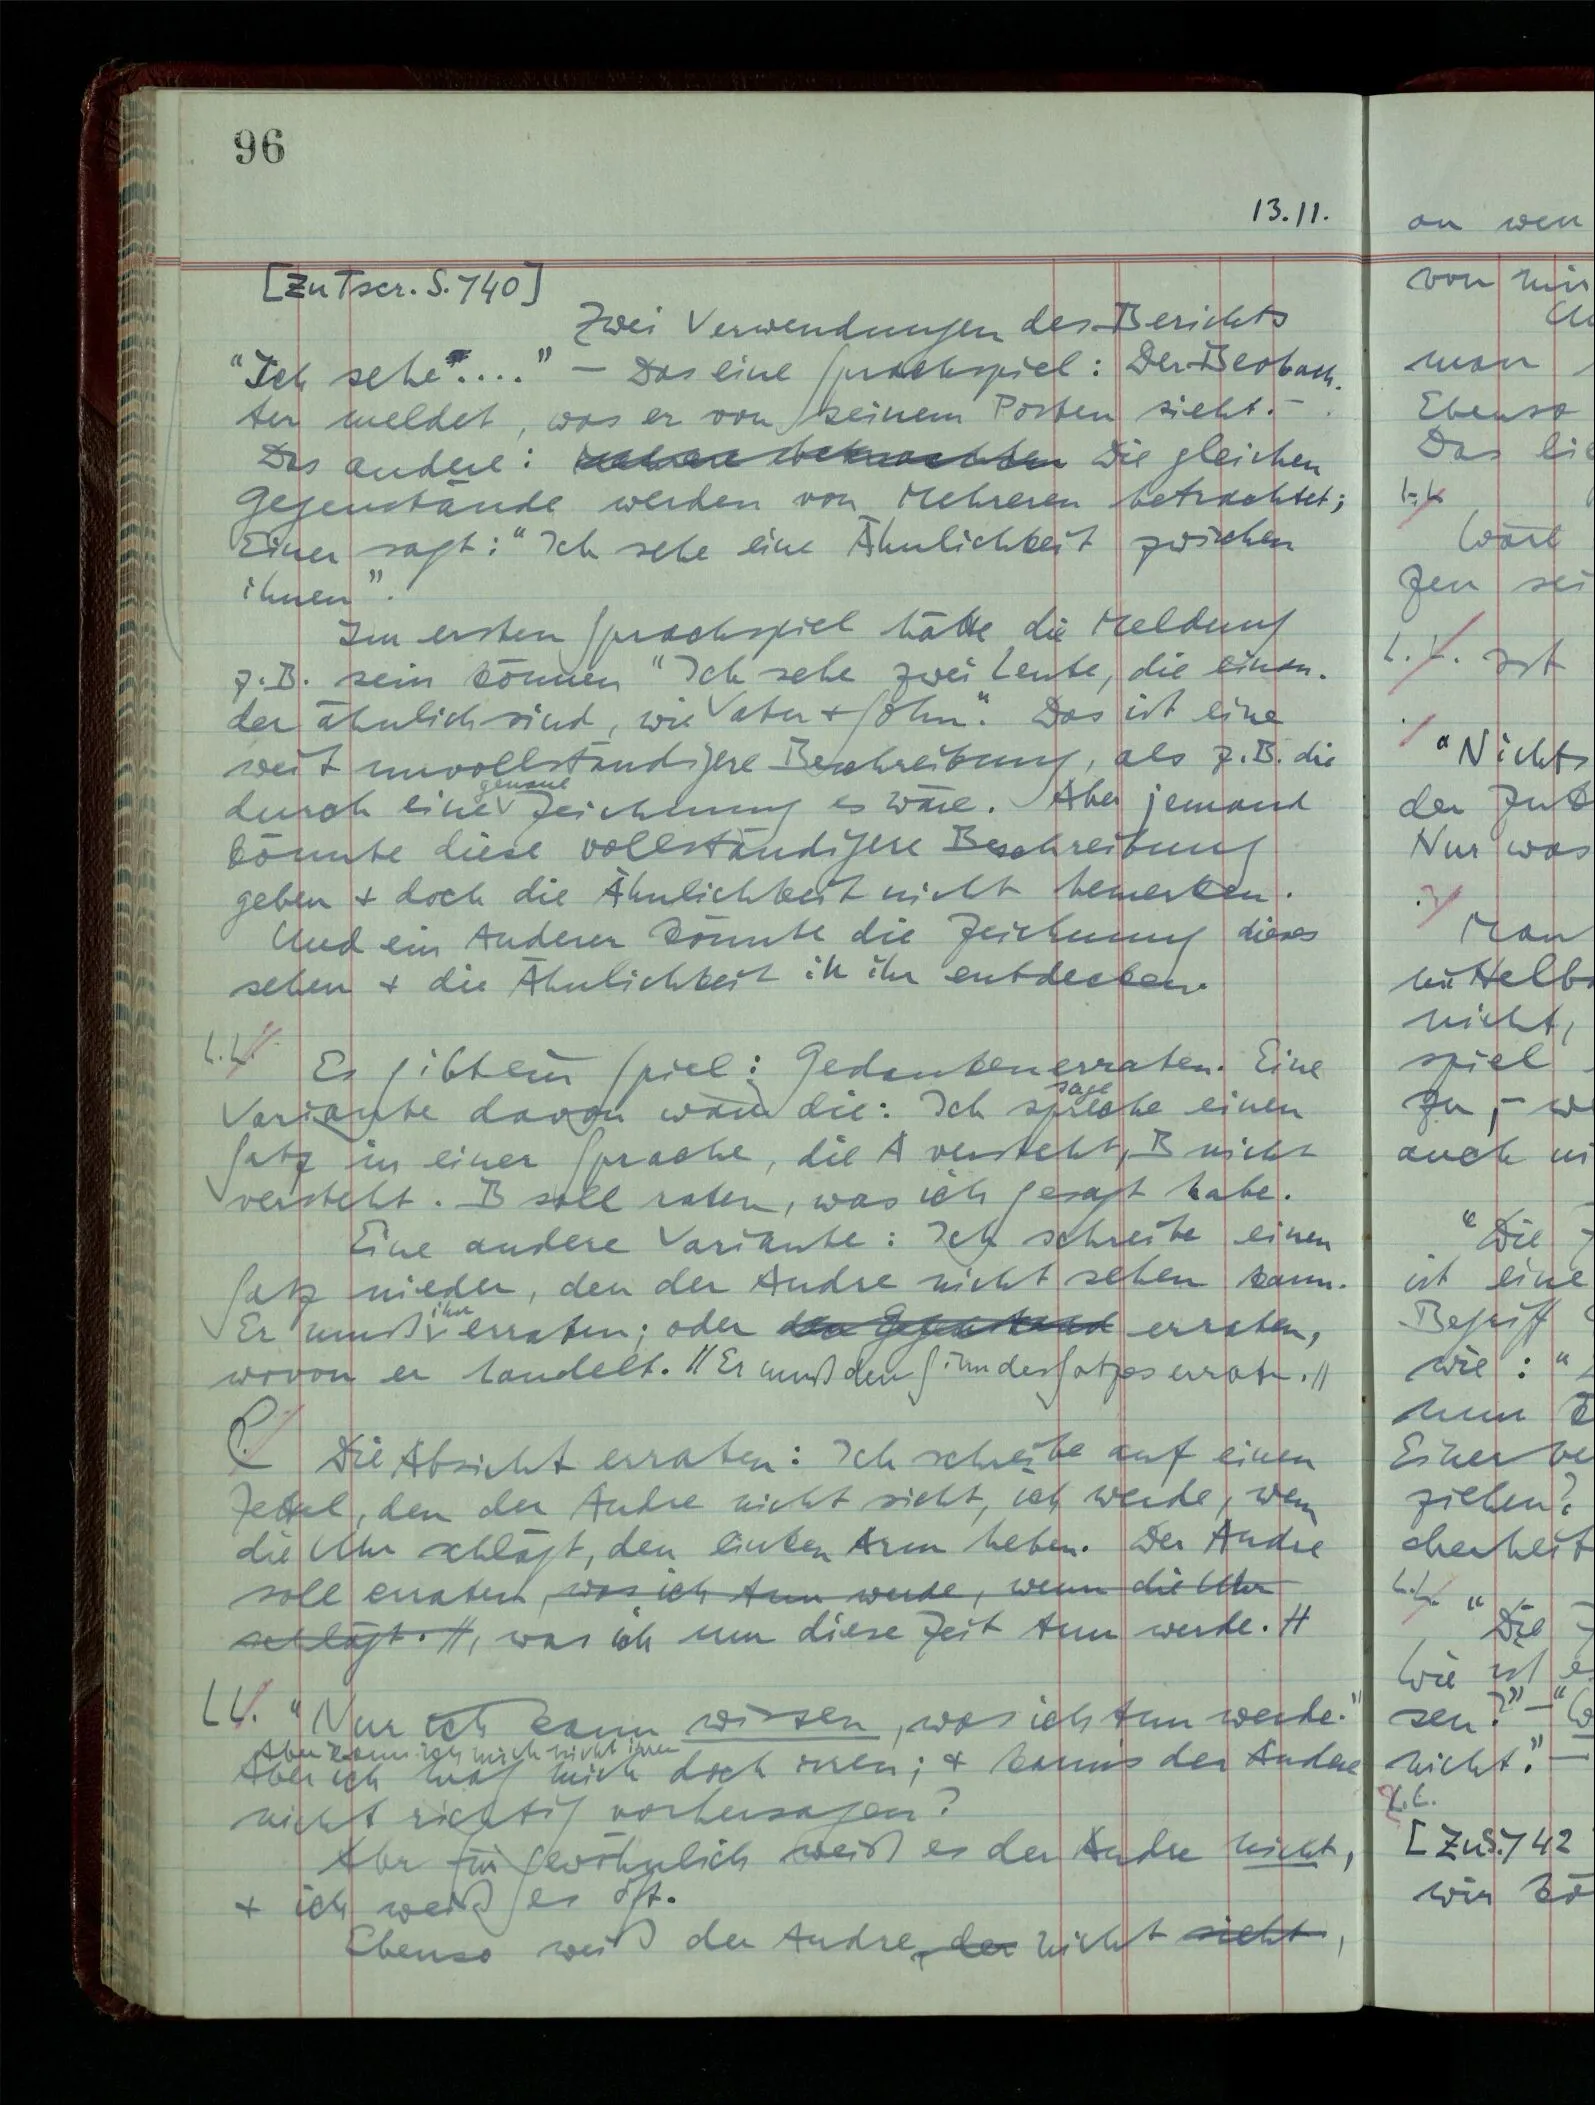 96
13.11.
[Zu Tscr. S. 740]
Zwei Verwendungen des Berichts
"Ich sehe ...." – Das eine Sprachspiel: Der Beobach-
ter meldet, was er von seinem Posten sieht. –
Das andere: Die gleichen
Gegenstände werden von Mehreren betrachtet;
Einer sagt: "Ich sehe eine Ähnlichkeit zwischen
ihnen".
Im ersten Sprachspiel hätte die Meldung
z.B. sein können "Ich sehe zwei Leute, die einan-
der ähnlich sind, wie Vater & Sohn". Das ist eine
weit unvollständigere Beschreibung, als z.B. die
durch eine genaue Zeichnung es wäre. Aber jemand
könnte diese vollständigere Beschreibung
geben & doch die Ähnlichkeit nicht bemerken.
Und ein Anderer könnte die Zeichnung dieses
sehen & die Ähnlichkeit in ihr entdecken.
Es gibt ein Spiel: Gedankenerraten. Eine
Variante davon wäre die: Ich spreche sage einen
Satz in einer Sprache, die A versteht, B nicht
versteht. B soll raten, was ich gesagt habe.
Eine andere Variante: Ich schreibe einen
Satz nieder, den der Andre nicht sehen kann.
Er muß ihn erraten; oder den Gegenstand erraten,
wovon er handelt. // Er muß den Sinn des Satzes erraten. //
Die Absicht erraten: Ich schreibe auf einen
Zettel, den der Andre nicht sieht, ich werde, wenn
die Uhr schlägt, den linken Arm heben. Der Andre
soll erraten, was ich tun werde, wenn die Uhr
schlägt. //, was ich um diese Zeit tun werde. //
"Nur ich kann wissen, was ich tun werde."
Aber kann ich mich nicht irren
Aber ich mag mich doch irren; & kann's der Andere
nicht richtig vorhersagen?
Aber für gewöhnlich weiß es der Andre nicht,
& ich weiß es oft.
Ebenso weiß der Andre, der nicht sieht,
an wen
von mir
man
Ebenso
Das
Wäre
zen sei
Ist
"Nichts
der
Nur was
Man
nicht,
spiel
zu, –
auch
"Die
ist eine
Begriff
wie: "
nun
Einer
ziehen?
cherheit
"Die
Wie ist
sen?" – "
nicht." –
[Zu S. 742
wir